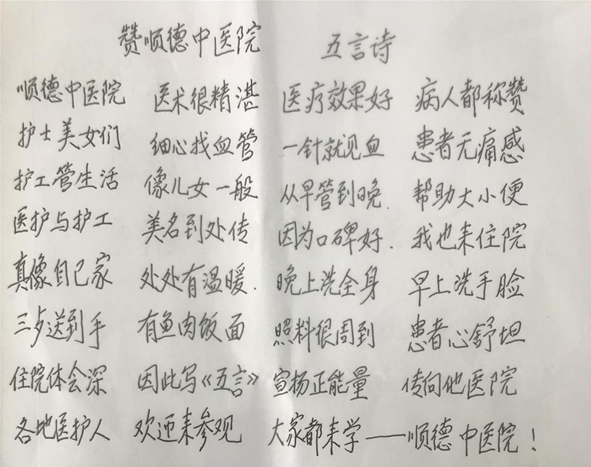 赞顺德中医院 五言诗
顺德中医院 医术很精湛 医疗效果好 病人都称赞
护士美女们 细心找血管 一针就见血 患者无痛感
护工管生活 像儿女一般 从早管到晚. 帮助大小便
医护与护工 美名到处传 因为口碑好. 我也来住院
真像自己家 处处有温暖. 晚上洗全身 早上洗手脸
三歺送到手 有鱼肉饭面 照料很周到 患者心舒坦
住院体会深 因此写《五言》 宣扬正能量 传向他医院
各地医护人 欢迎来参观 大家都来学——顺德中医院！